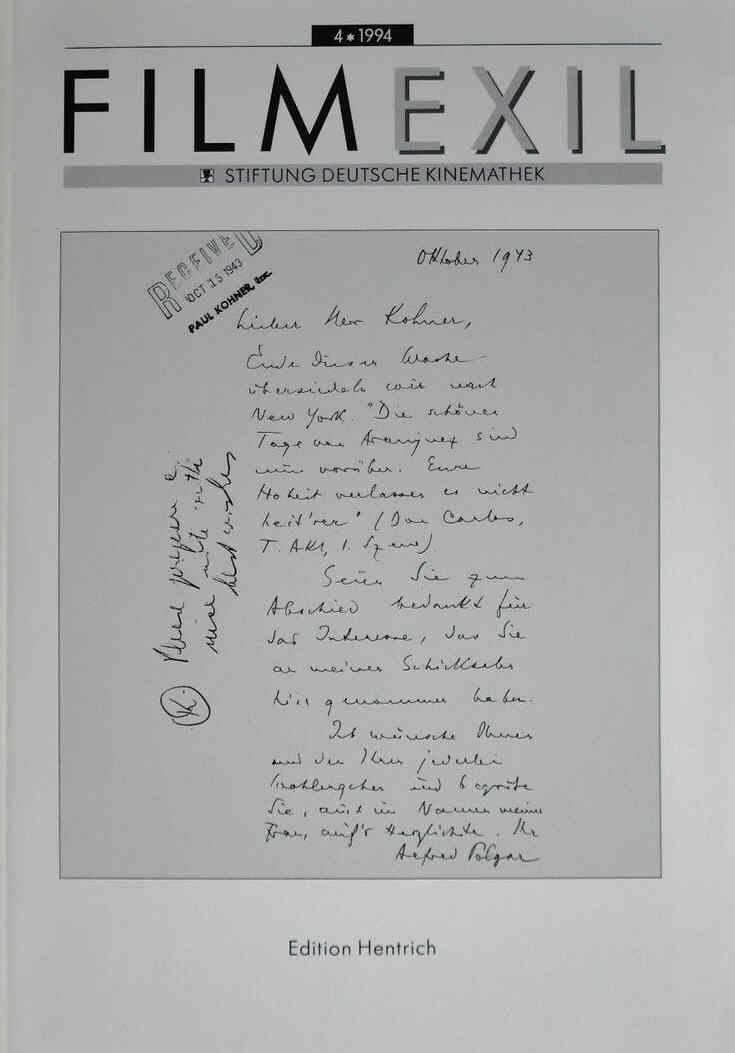 4*1994
FILMEXIL
STIFTUNG DEUTSCHE KINEMATHEK
RECEIVED
OCT 15 1943
PAUL KOHNER, Inc.
Oktober 1943
Lieber Herr Kohner,
Ende dieser Woche
übersiedeln wir nach
New York. "Die schönen
Tage von Aranjuez sind
nun vorüber. Eure
Hoheit verlassen es nicht
heit'rer" (Don Carlos,
I. Akt, 1. Szene).
Seien Sie zum
Abschied bedankt für
das Interesse, das Sie
an meinem Schicksale
hier genommen haben.
Ich wünsche Ihnen
und den Ihren jederlei
Wohlergehen und begrüße
Sie, auch im Namen meiner
Frau, auf's Herzlichste. Ihr
Alfred Polgar
Please prepare a
nice note with
best wishes
K.
Edition Hentrich